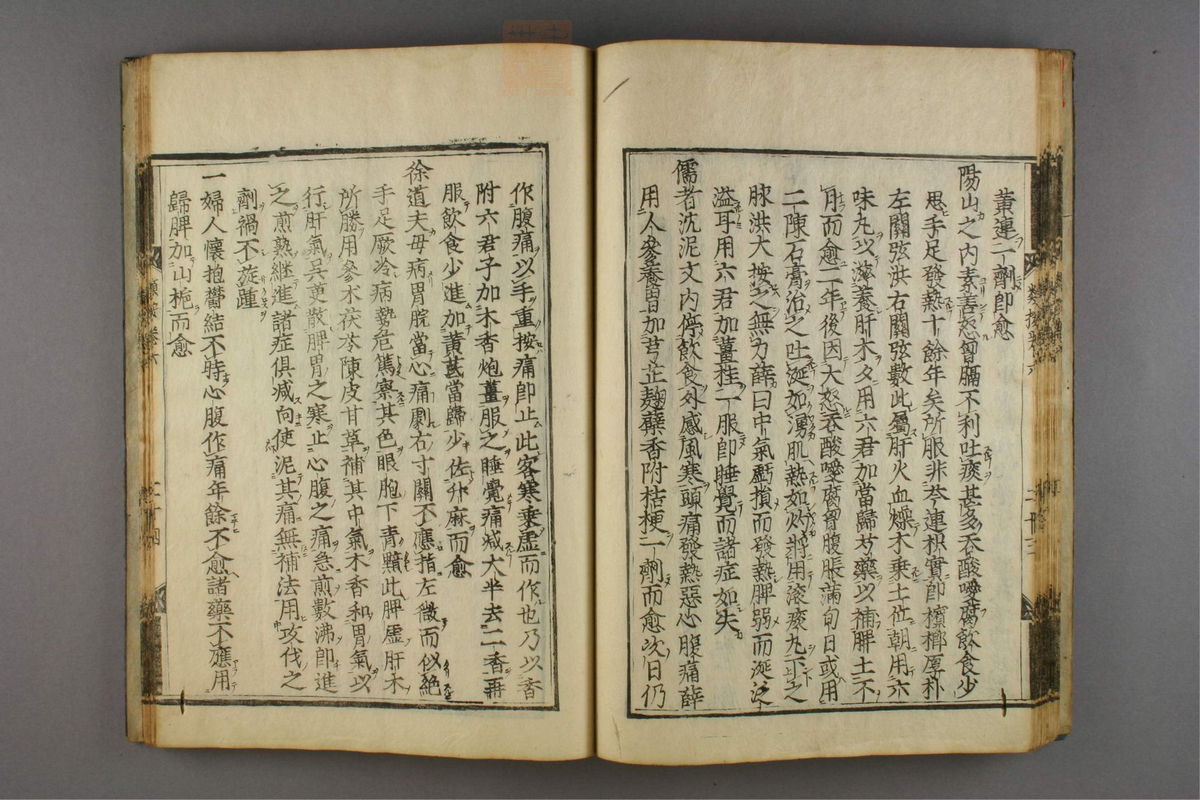 黄連二劑即愈
陽山之内素善怒胷膈不利吐痰甚多吞酸噯腐飲食少
思手足發熱十餘年矣所服非芩連枳實即檳榔厚朴
左關弦洪右關弦數此屬肝火血燥木乗土位朝用六
味丸以滋養肝木夕用六君加當歸芍藥以補脾土不
月而愈二年後因大怒吞酸噯腐胷腹脹滿旬日或用
二陳石膏治之吐涎如湧肌熱如灼將用滚痰丸下之
脉洪大按之無力薛曰中氣虧損而發熱脾弱而涎泛
溢耳用六君加薑桂一服即睡覺而諸症如失
儒者沈泥文内停飲食外感風寒頭痛發熱惡心腹痛薛
用人參養胃加芎芷麹蘗香附桔梗一劑而愈次日仍
作腹痛以手重按痛即止此客寒乗虚而作也乃以香
附六君子加木香炮薑服之睡覺痛减大半去二香再
服飲食少進加黄芪當歸少佐升麻而愈
徐道夫母病胃脘當心痛劇右寸關不應指左微而似絶
手足厥冷病勢危篤察其色眼胞下青黯此脾虚肝木
所勝用參术茯苓陳皮甘草補其中氣木香和胃氣以
行肝氣吴茰散脾胃之寒止心腹之痛急煎數沸即進
之煎熟継進諸症俱减向使泥其痛無補法用攻伐之
劑禍不旋踵
一婦人懷抱欝結不時心腹作痛年餘不愈諸藥不應用
歸脾加山梔而愈